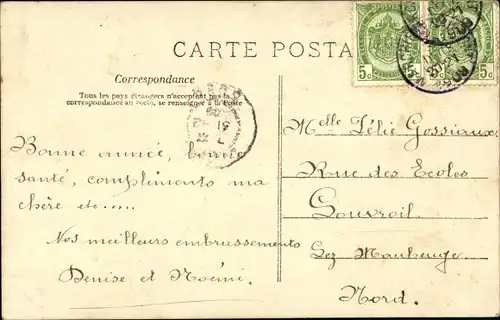 CARTE POSTA
Correspondance
Tous les pays étrangers n'acceptent pas la
correspondance au recto, se renseigner à la Poste
5c 5c 5c
Bonne année, bonne
santé, compliments ma
chère etc.....
Nos meilleurs embrassements
Denise et Noémi.
Melle Zélie Gossiaux
Rue des Ecoles
Louvroil
Lez Maubeuge
Nord.